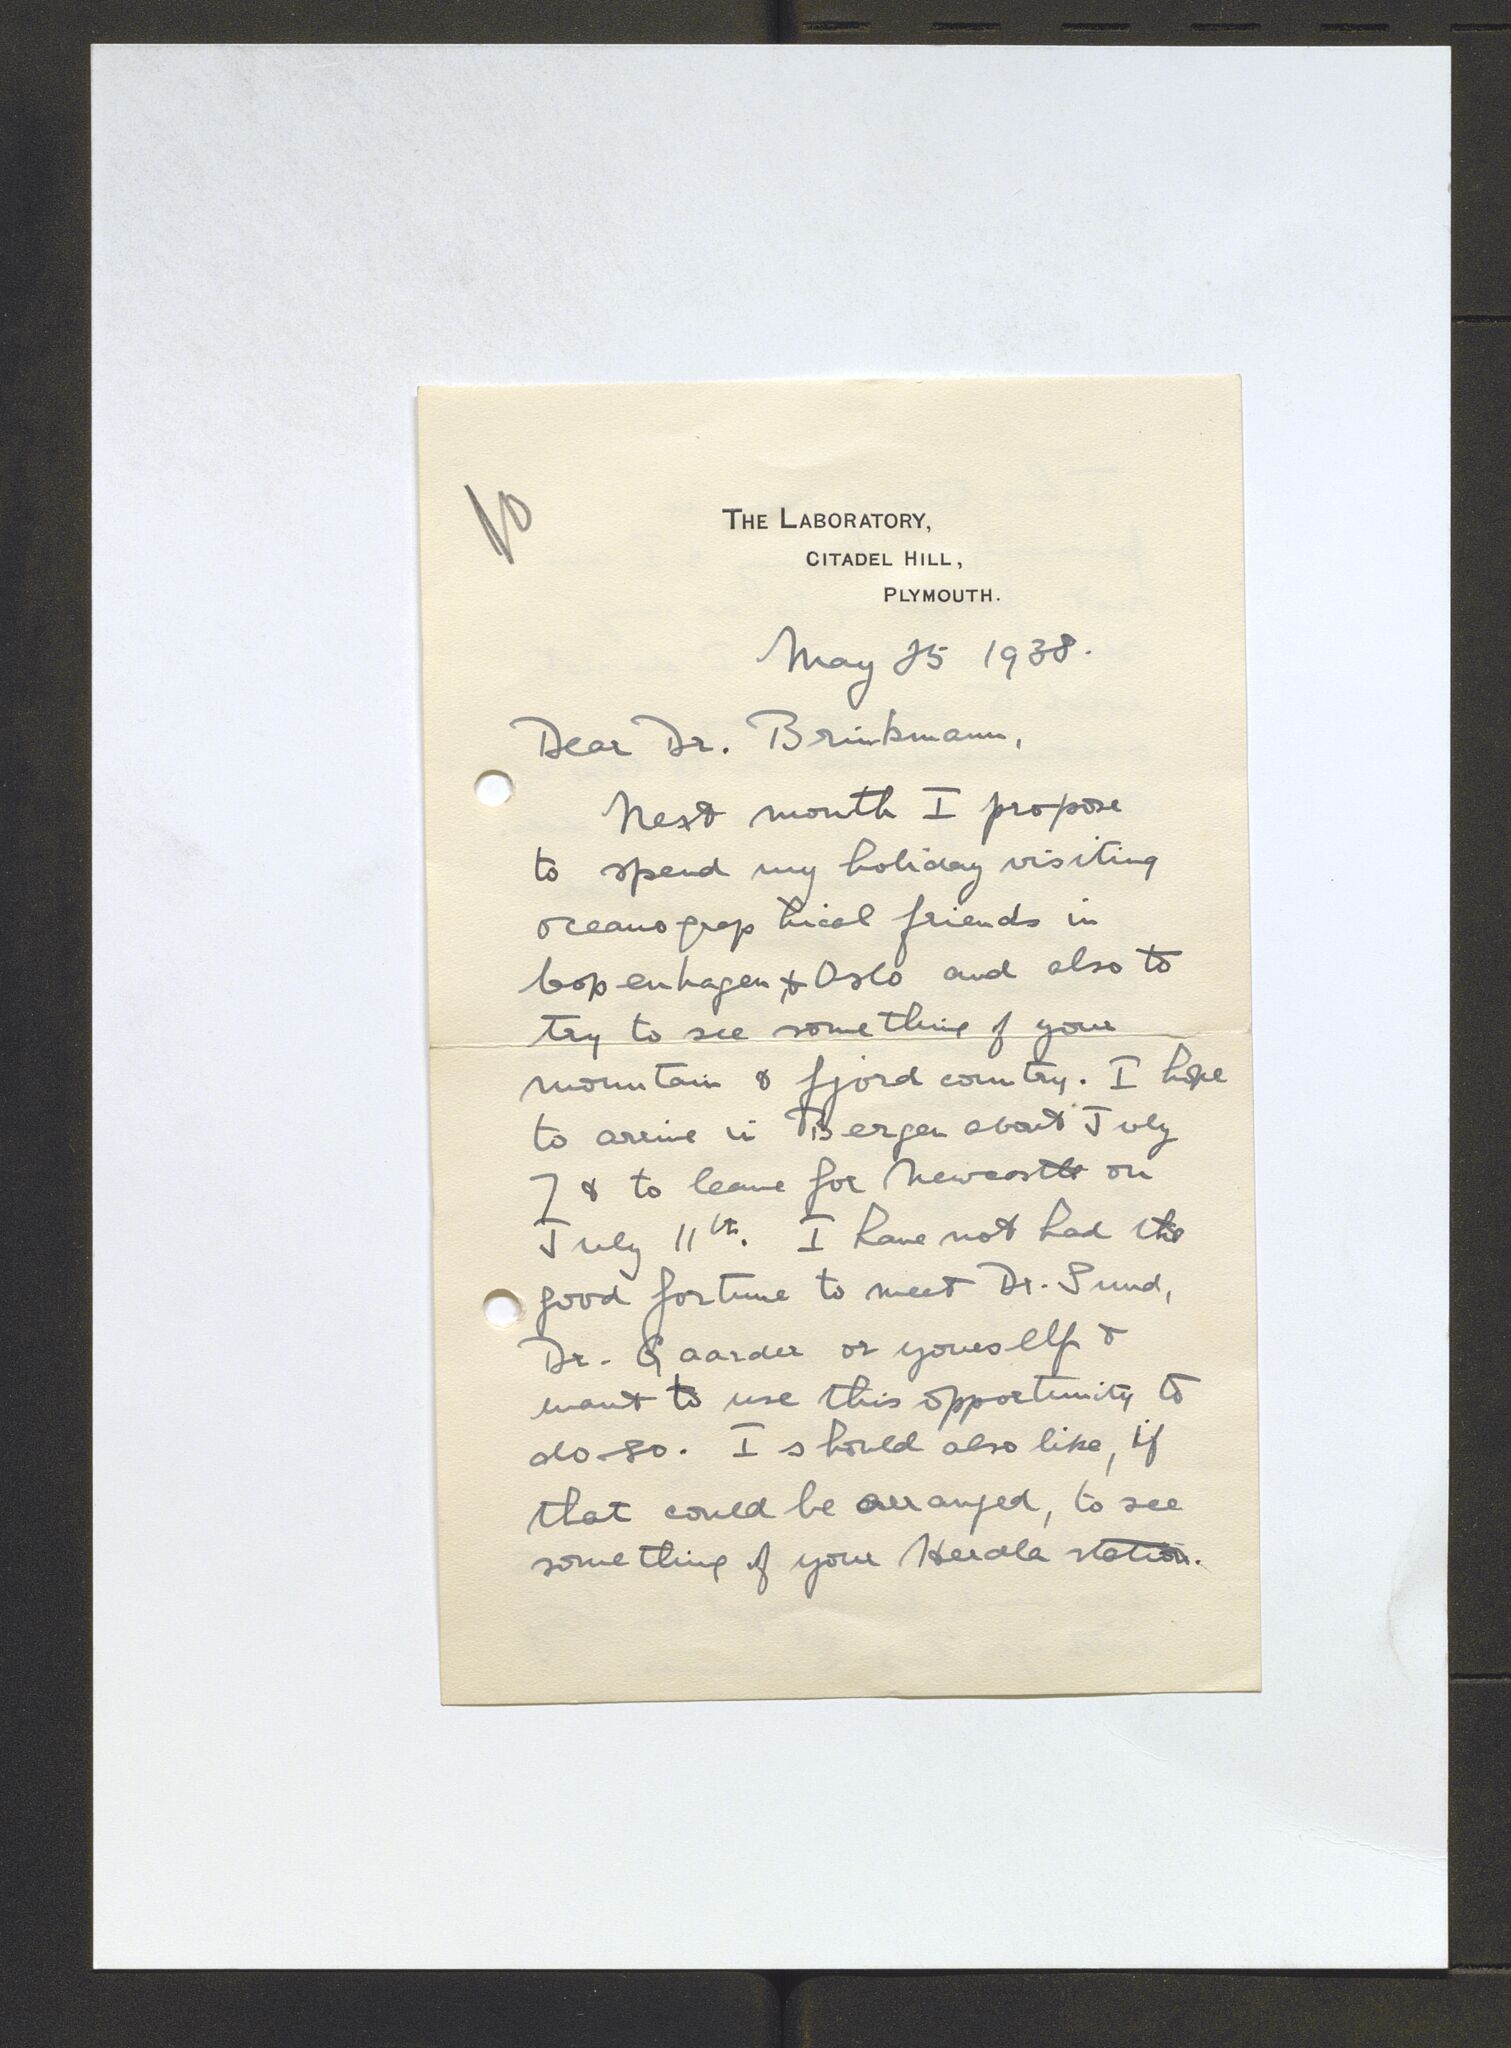 THE LABORATORY,
CITADEL HILL,
PLYMOUTH.
May 25 1938.
Dear Dr. Brinkmann,
Next month I propose
to spend my holiday visiting
oceanographical friends in
Copenhagen & Oslo and also to
try to see something of your
mountain & fjord country. I hope
to arrive in Bergen about July
7 & to leave for Newcastle on
July 11th. I have not had the
good fortune to meet Dr. Sund,
Dr. Gaarder or yourself &
want to use this opportunity to
do so. I should also like, if
that could be arranged, to see
something of your Herdla station.